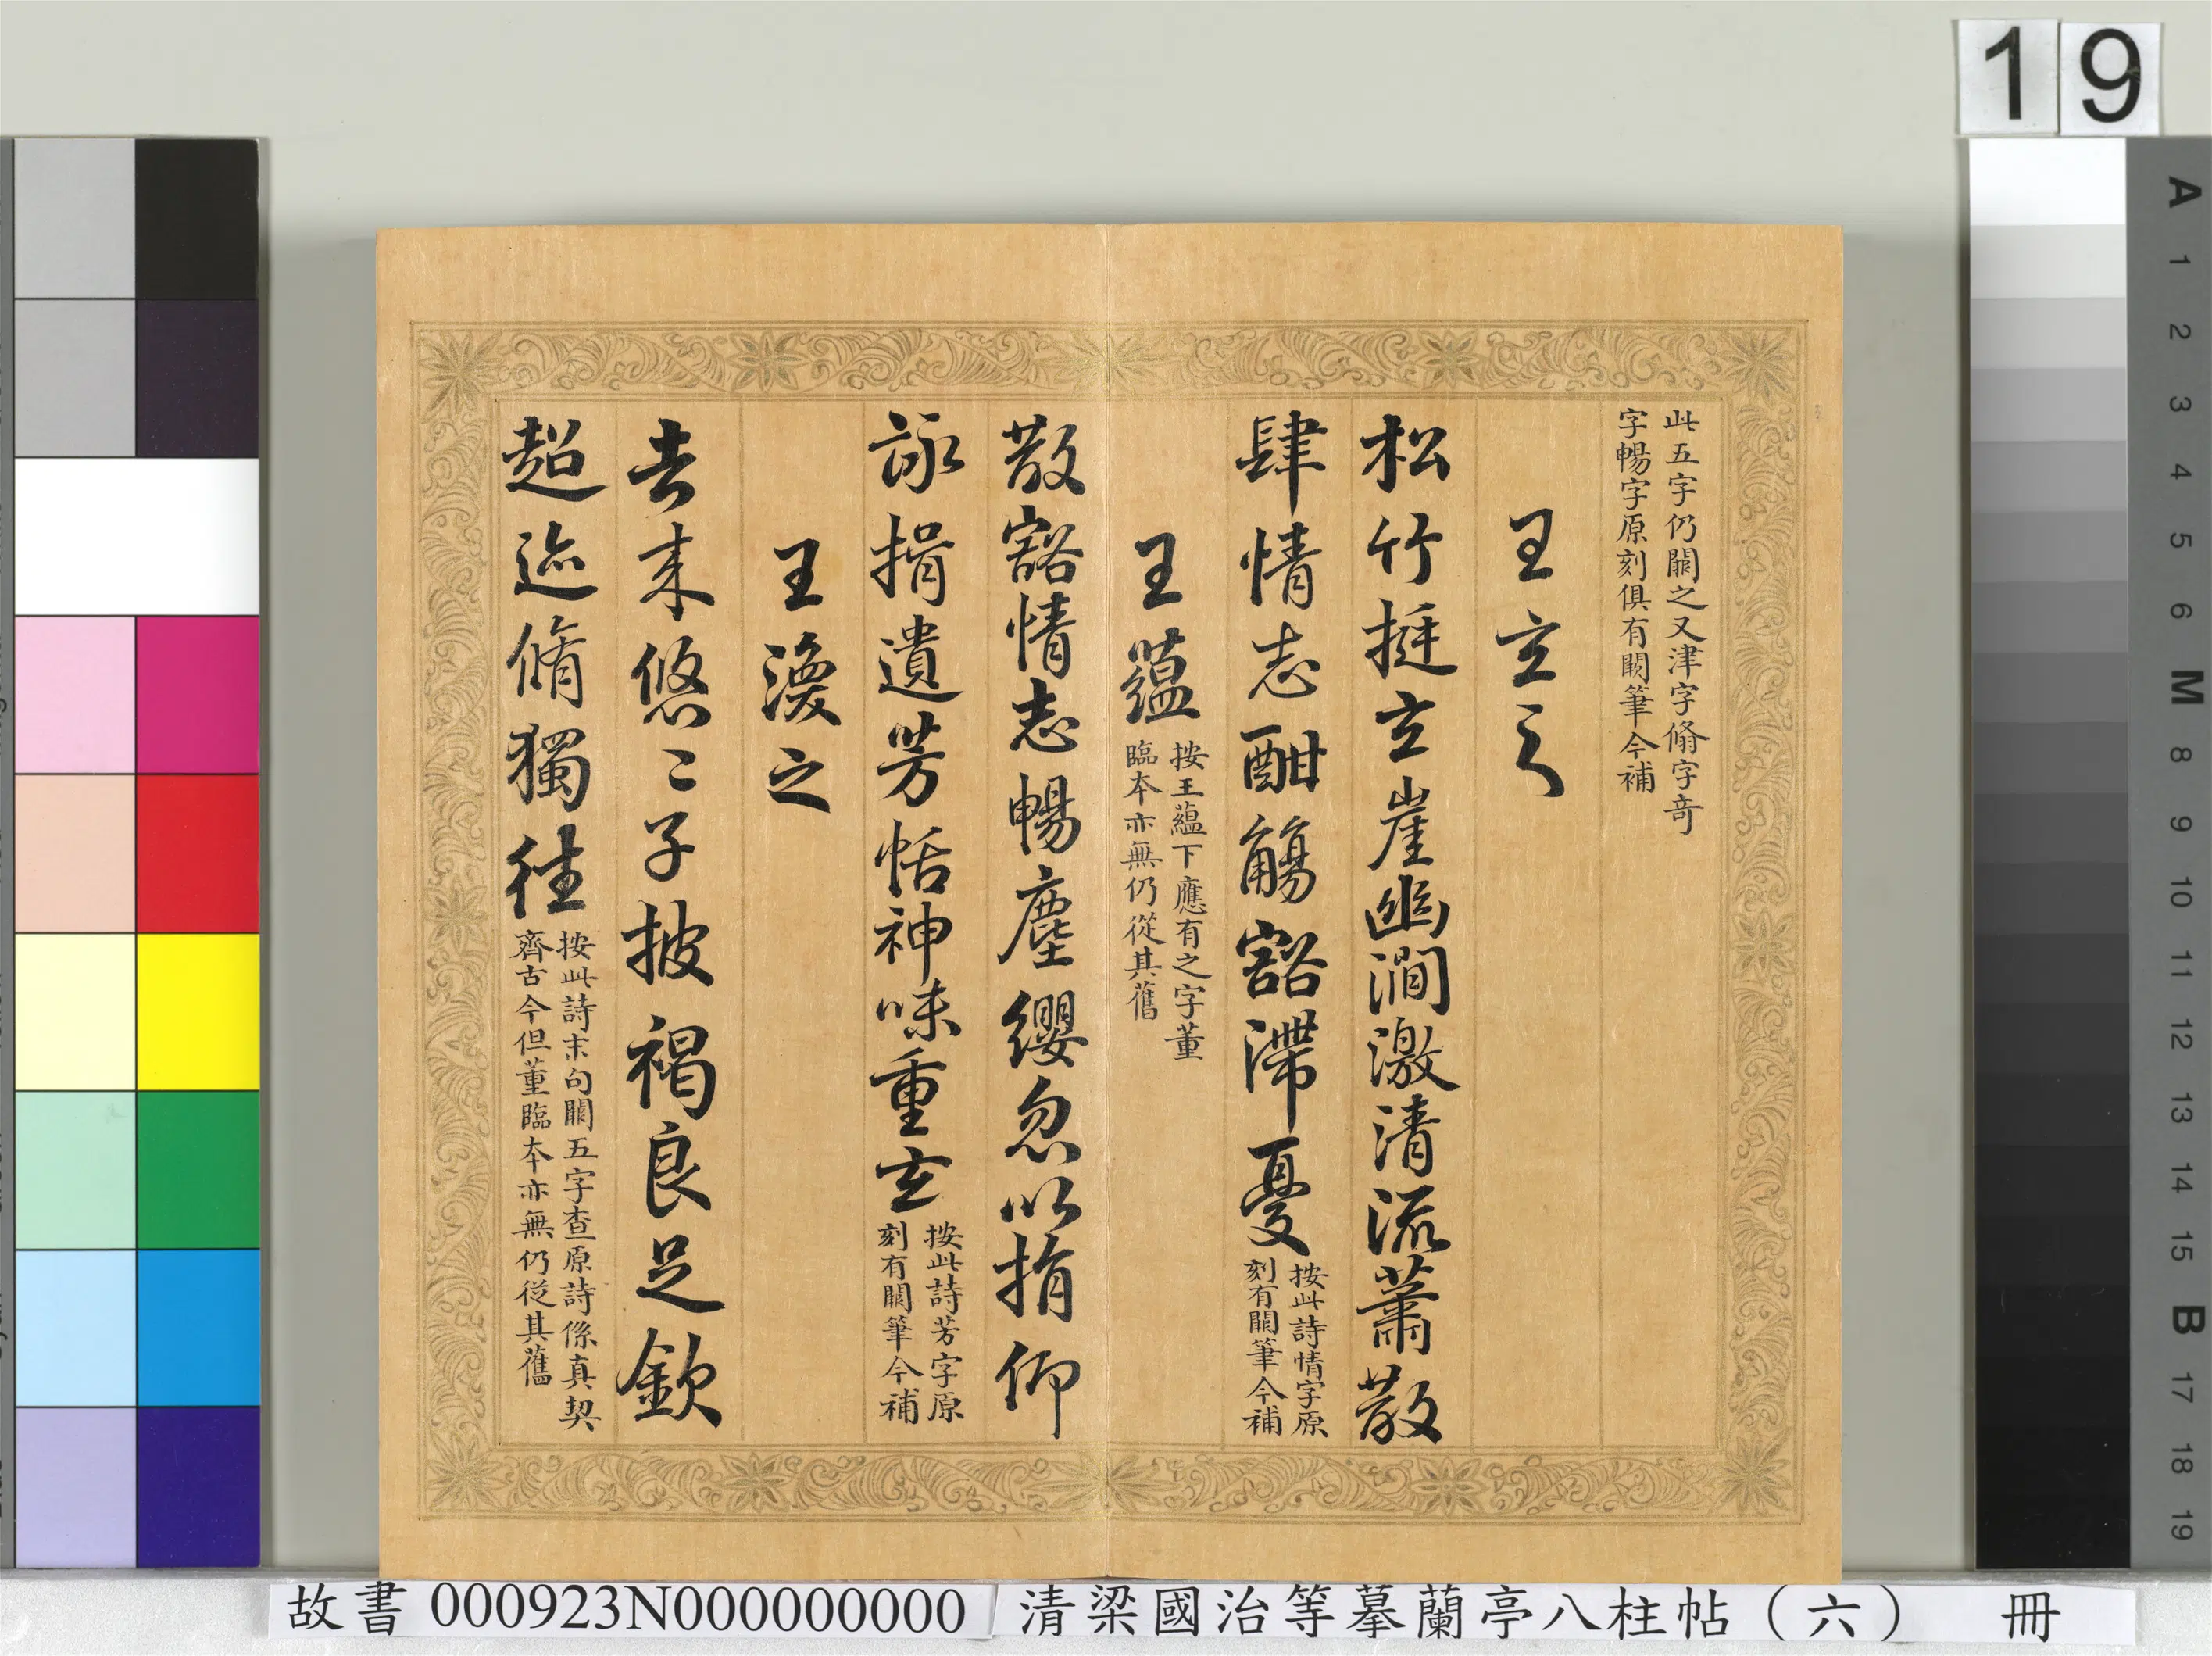 19
此五字仍闕之又津字脩字奇
字暢字原刻俱有闕筆今補
王玄之
松竹挺玄崖幽澗激清流蕭散
肆情志酣觴豁滯憂
按此詩情字原
刻有闕筆今補
王蘊
按王蘊下應有之字董
臨本亦無仍從其舊
散豁情志暢塵纓忽以捐仰
詠挹遺芳恬神味重玄
按此詩芳字原
刻有闕筆今補
王渙之
去來悠々子披褐良足欽
超迹脩獨往
按此詩末句闕五字查原詩係真契
齊古今但董臨本亦無仍從其舊
A 1 2 3 4 5 6 M 8 9 10 11 12 13 14 15 B 17 18 19
故書 000923N000000000 清梁國治等摹蘭亭八柱帖（六） 冊